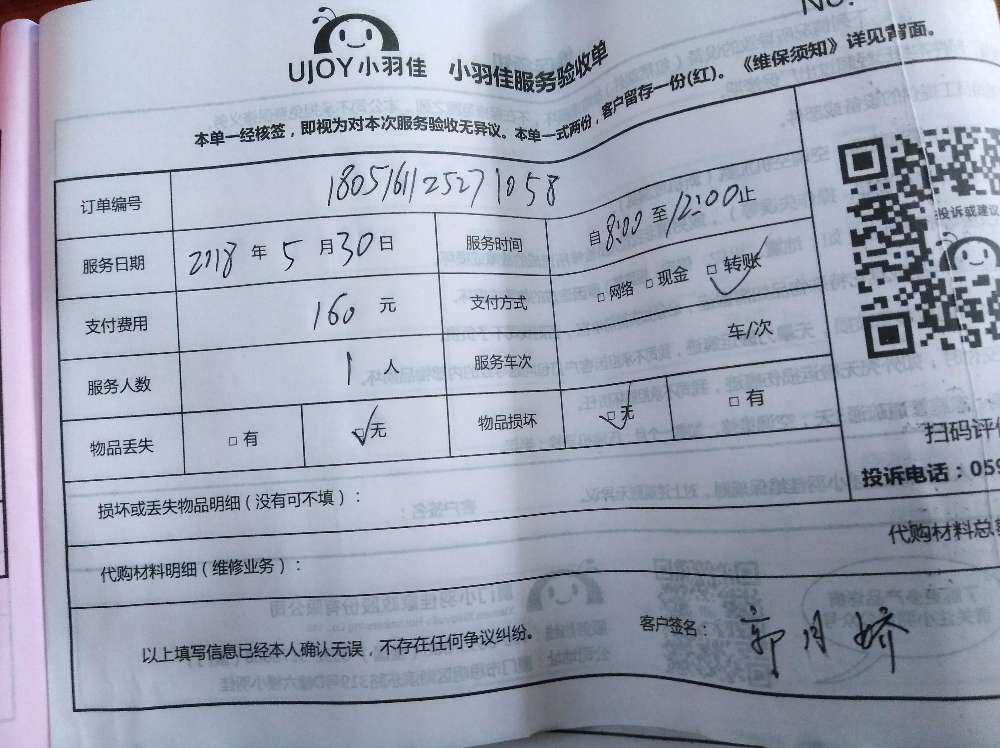 No.
UJOY小羽佳 小羽佳服务验收单
本单一经核签，即视为对本次服务验收无异议。本单一式两份，客户留存一份(红)。《维保须知》详见背面。
订单编号 1805161125271058
服务日期 2018 年 5 月 30 日 服务时间 自 8:00 至 12:00 止
支付费用 160 元 支付方式 □ 网络 □ 现金 □ 转账
服务人数 1 人 服务车次 车/次
物品丢失 □ 有 □ 无 物品损坏 □ 无 □ 有
投诉或建议
扫码评
投诉电话：059
损坏或丢失物品明细（没有可不填）：
代购材料明细（维修业务）：
代购材料总
以上填写信息已经本人确认无误，不存在任何争议纠纷。 客户签名： 郭月娇